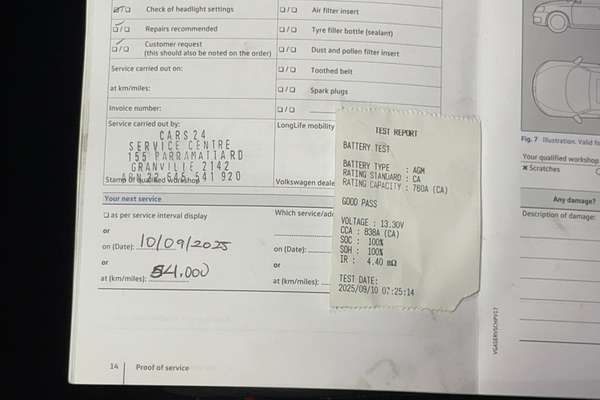 Check of headlight settings
Repairs recommended
Customer request
(this should also be noted on the order)
Service carried out on:
at km/miles:
Invoice number:
Service carried out by:
CARS24
SERVICE CENTRE
155 PARRAMATTA RD
GRANVILLE 2142
ABN 22 645 541 920
Stamp of qualified workshop
Air filter insert
Tyre filler bottle (sealant)
Dust and pollen filter insert
Toothed belt
Spark plugs
LongLife mobility
Volkswagen deale
Your next service
as per service interval display
or
on (Date): 10/09/2025
or
at (km/miles): 54,000
Which service/add
on (Date):
or
at (km/miles):
14 Proof of service
TEST REPORT
BATTERY TEST
BATTERY TYPE : AGM
RATING STANDARD : CA
RATING CAPACITY : 760A (CA)
GOOD PASS
VOLTAGE : 13.30V
CCA : 838A (CA)
SOC : 100%
SOH : 100%
IR : 4.40 mΩ
TEST DATE:
2025/09/10 07:25:14
Fig. 7 Illustration. Valid fo
Your qualified workshop
Scratches
Any damage?
Description of damage: